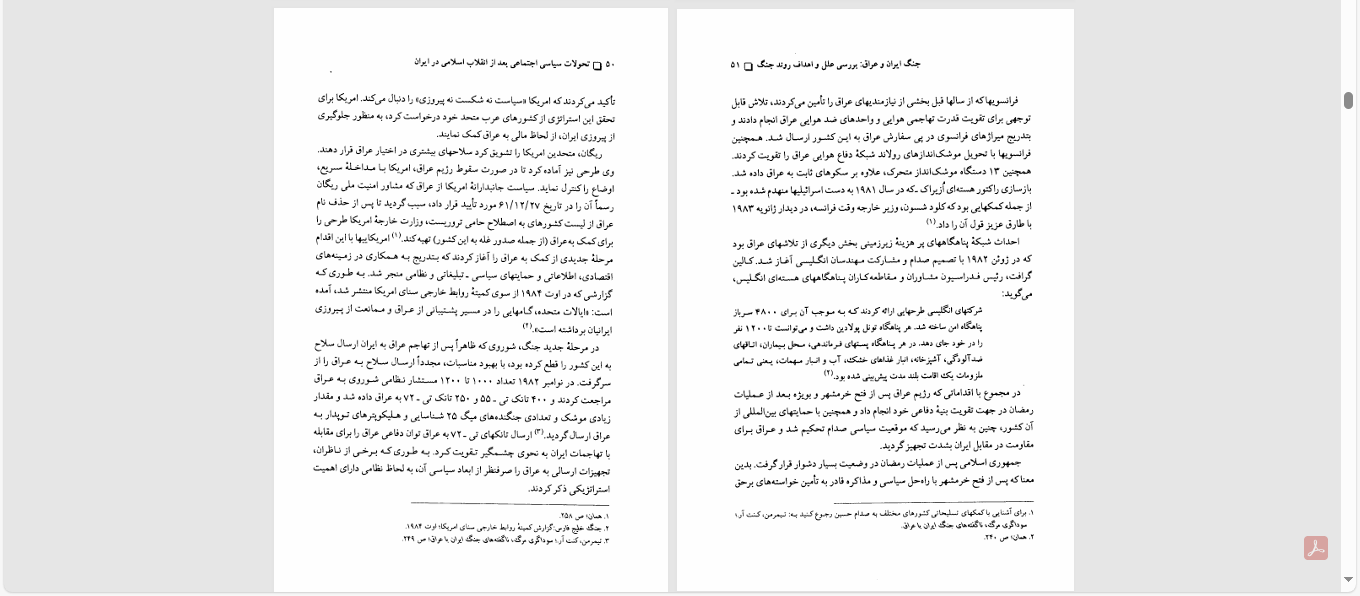 ۵۰ تحولات سیاسی اجتماعی بعد از انقلاب اسلامی در ایران
تأکید می‌کردند که امریکا «سیاست نه شکست نه پیروزی» را دنبال می‌کند. امریکا برای
تحقق این استراتژی از کشورهای عرب متحد خود درخواست کرد، به منظور جلوگیری
از پیروزی ایران، از لحاظ مالی به عراق کمک نمایند.
ریگان، متحدین امریکا را تشویق کرد سلاحهای بیشتری در اختیار عراق قرار دهند.
وی طرحی نیز آماده کرد تا در صورت سقوط رژیم عراق، امریکا با مداخلهٔ سریع،
اوضاع را کنترل نماید. سیاست جانبدارانهٔ امریکا از عراق که مشاور امنیت ملی ریگان
رسماً آن را در تاریخ ۶۱/۱۲/۲۷ مورد تأیید قرار داد، سبب گردید تا پس از حذف نام
عراق از لیست کشورهای به اصطلاح حامی تروریست، وزارت خارجهٔ امریکا طرحی را
برای کمک به عراق (از جمله صدور غله به این کشور) تهیه کند.(۱) امریکاییها با این اقدام
مرحلهٔ جدیدی از کمک به عراق را آغاز کردند که بتدریج به همکاری در زمینه‌های
اقتصادی، اطلاعاتی و حمایتهای سیاسی ـ تبلیغاتی و نظامی منجر شد. به طوری که
گزارشی که در اوت ۱۹۸۴ از سوی کمیتهٔ روابط خارجی سنای امریکا منتشر شد، آمده
است: «ایالات متحده، گامهایی را در مسیر پشتیبانی از عراق و ممانعت از پیروزی
ایرانیان برداشته است».(۲)
در مرحلهٔ جدید جنگ، شوروی که ظاهراً پس از تهاجم عراق به ایران ارسال سلاح
به این کشور را قطع کرده بود، با بهبود مناسبات، مجدداً ارسال سلاح به عراق را از
سرگرفت. در نوامبر ۱۹۸۲ تعداد ۱۰۰۰ تا ۱۲۰۰ مستشار نظامی شوروی به عراق
مراجعت کردند و ۴۰۰ تانک تی ـ ۵۵ و ۲۵۰ تانک تی ـ ۷۲ به عراق داده شد و مقدار
زیادی موشک و تعدادی جنگنده‌های میگ ۲۵ شناسایی و هلیکوپترهای توپدار به
عراق ارسال گردید.(۳) ارسال تانکهای تی ـ ۷۲ به عراق توان دفاعی عراق را برای مقابله
با تهاجمات ایران به نحوی چشمگیر تقویت کرد. به طوری که برخی از ناظران،
تجهیزات ارسالی به عراق را صرفنظر از ابعاد سیاسی آن، به لحاظ نظامی دارای اهمیت
استراتژیکی ذکر کردند.
۱. همان؛ ص ۲۵۸.
۲. جنگ خلیج فارس؛ گزارش کمیتهٔ روابط خارجی سنای امریکا؛ اوت ۱۹۸۴.
۳. تیمرمن، کنت آر.؛ سوداگری مرگ، ناگفته‌های جنگ ایران با عراق؛ ص ۲۴۹.
جنگ ایران و عراق: بررسی علل و اهداف روند جنگ ۵۱
فرانسویها که از سالها قبل بخشی از نیازمندیهای عراق را تأمین می‌کردند، تلاش قابل
توجهی برای تقویت قدرت تهاجمی هوایی و واحدهای ضد هوایی عراق انجام دادند و
بتدریج میراژهای فرانسوی در پی سفارش عراق به این کشور ارسال شد. همچنین
فرانسویها با تحویل موشک‌اندازهای رولاند شبکهٔ دفاع هوایی عراق را تقویت کردند.
همچنین ۱۳ دستگاه موشک‌انداز متحرک، علاوه بر سکوهای ثابت به عراق داده شد.
بازسازی راکتور هسته‌ای اُزیراک ـ که در سال ۱۹۸۱ به دست اسرائیلیها منهدم شده بود ـ
از جمله کمکهایی بود که کلود شسون، وزیر خارجه وقت فرانسه، در دیدار ژانویه ۱۹۸۳
با طارق عزیز قول آن را داد.(۱)
احداث شبکهٔ پناهگاههای پر هزینهٔ زیرزمینی بخش دیگری از تلاشهای عراق بود
که در ژوئن ۱۹۸۲ با تصمیم صدام و مشارکت مهندسان انگلیسی آغاز شد. کالین
گرافت، رئیس فدراسیون مشاوران و مقاطعه‌کاران پناهگاههای هسته‌ای انگلیس،
می‌گوید:
شرکتهای انگلیسی طرحهایی ارائه کردند که به موجب آن برای ۴۸۰۰ سرباز
پناهگاه امن ساخته شد. هر پناهگاه تونل پولادین داشت و می‌توانست تا ۱۲۰۰ نفر
را در خود جای دهد. در هر پناهگاه پستهای فرماندهی، محل بیماران، اتاقهای
ضدآلودگی، آشپزخانه، انبار غذاهای خشک، آب و انبار مهمات، یعنی تمامی
ملزومات یک اقامت بلند مدت پیش‌بینی شده بود.(۲)
در مجموع با اقداماتی که رژیم عراق پس از فتح خرمشهر و بویژه بعد از عملیات
رمضان در جهت تقویت بنیهٔ دفاعی خود انجام داد و همچنین با حمایتهای بین‌المللی از
آن کشور، چنین به نظر می‌رسید که موقعیت سیاسی صدام تحکیم شد و عراق برای
مقاومت در مقابل ایران بشدت تجهیز گردید.
جمهوری اسلامی پس از عملیات رمضان در وضعیت بسیار دشوار قرار گرفت. بدین
معنا که پس از فتح خرمشهر با راه‌حل سیاسی و مذاکره قادر به تأمین خواسته‌های برحق
۱. برای آشنایی با کمکهای تسلیحاتی کشورهای مختلف به صدام حسین رجوع کنید به: تیمرمن، کنت آر.؛
سوداگری مرگ، ناگفته‌های جنگ ایران با عراق.
۲. همان؛ ص ۲۴۰.